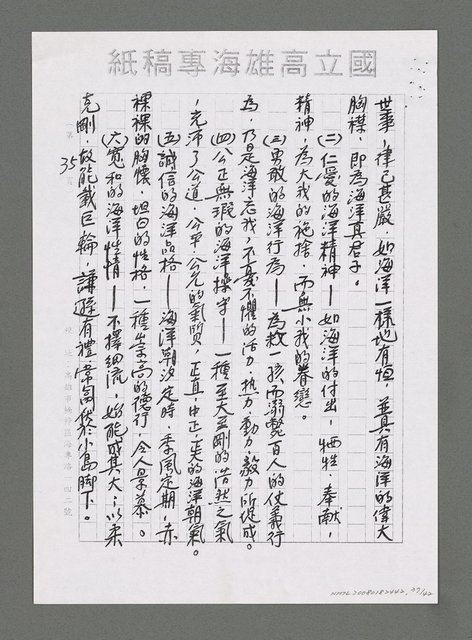 國立高雄海專稿紙
世事，律己甚嚴，如海洋一樣地有恒，並具有海洋的偉大
胸襟，即為海洋真君子。
（二）仁愛的海洋精神——如海洋的付出，牺牲，奉献，
精神，為大我的施捨，而無小我的眷戀。
（三）勇敢的海洋行為——為救一孩而溺斃百人的仗義行
為，乃是海洋忘我，不憂不懼的活力，热力，動力，毅力所促成。
（四）公正無瑕的海洋操守——一種至大至剛的浩然之氣
，充沛了公道，公平，公允的氣質，正直，中正，正美的海洋朝氣。
（五）誠信的海洋品格——海洋潮汐定時，季風定期，赤
裸裸的胸懷，坦白的性格，一種崇高的德行，令人景慕。
（六）寬和的海洋性情——不擇细流，始能成其大；以柔
克剛，故能載巨輪，謙遜有禮，常匍伏於小島脚下。
35
NMTL20080182442, 37/42